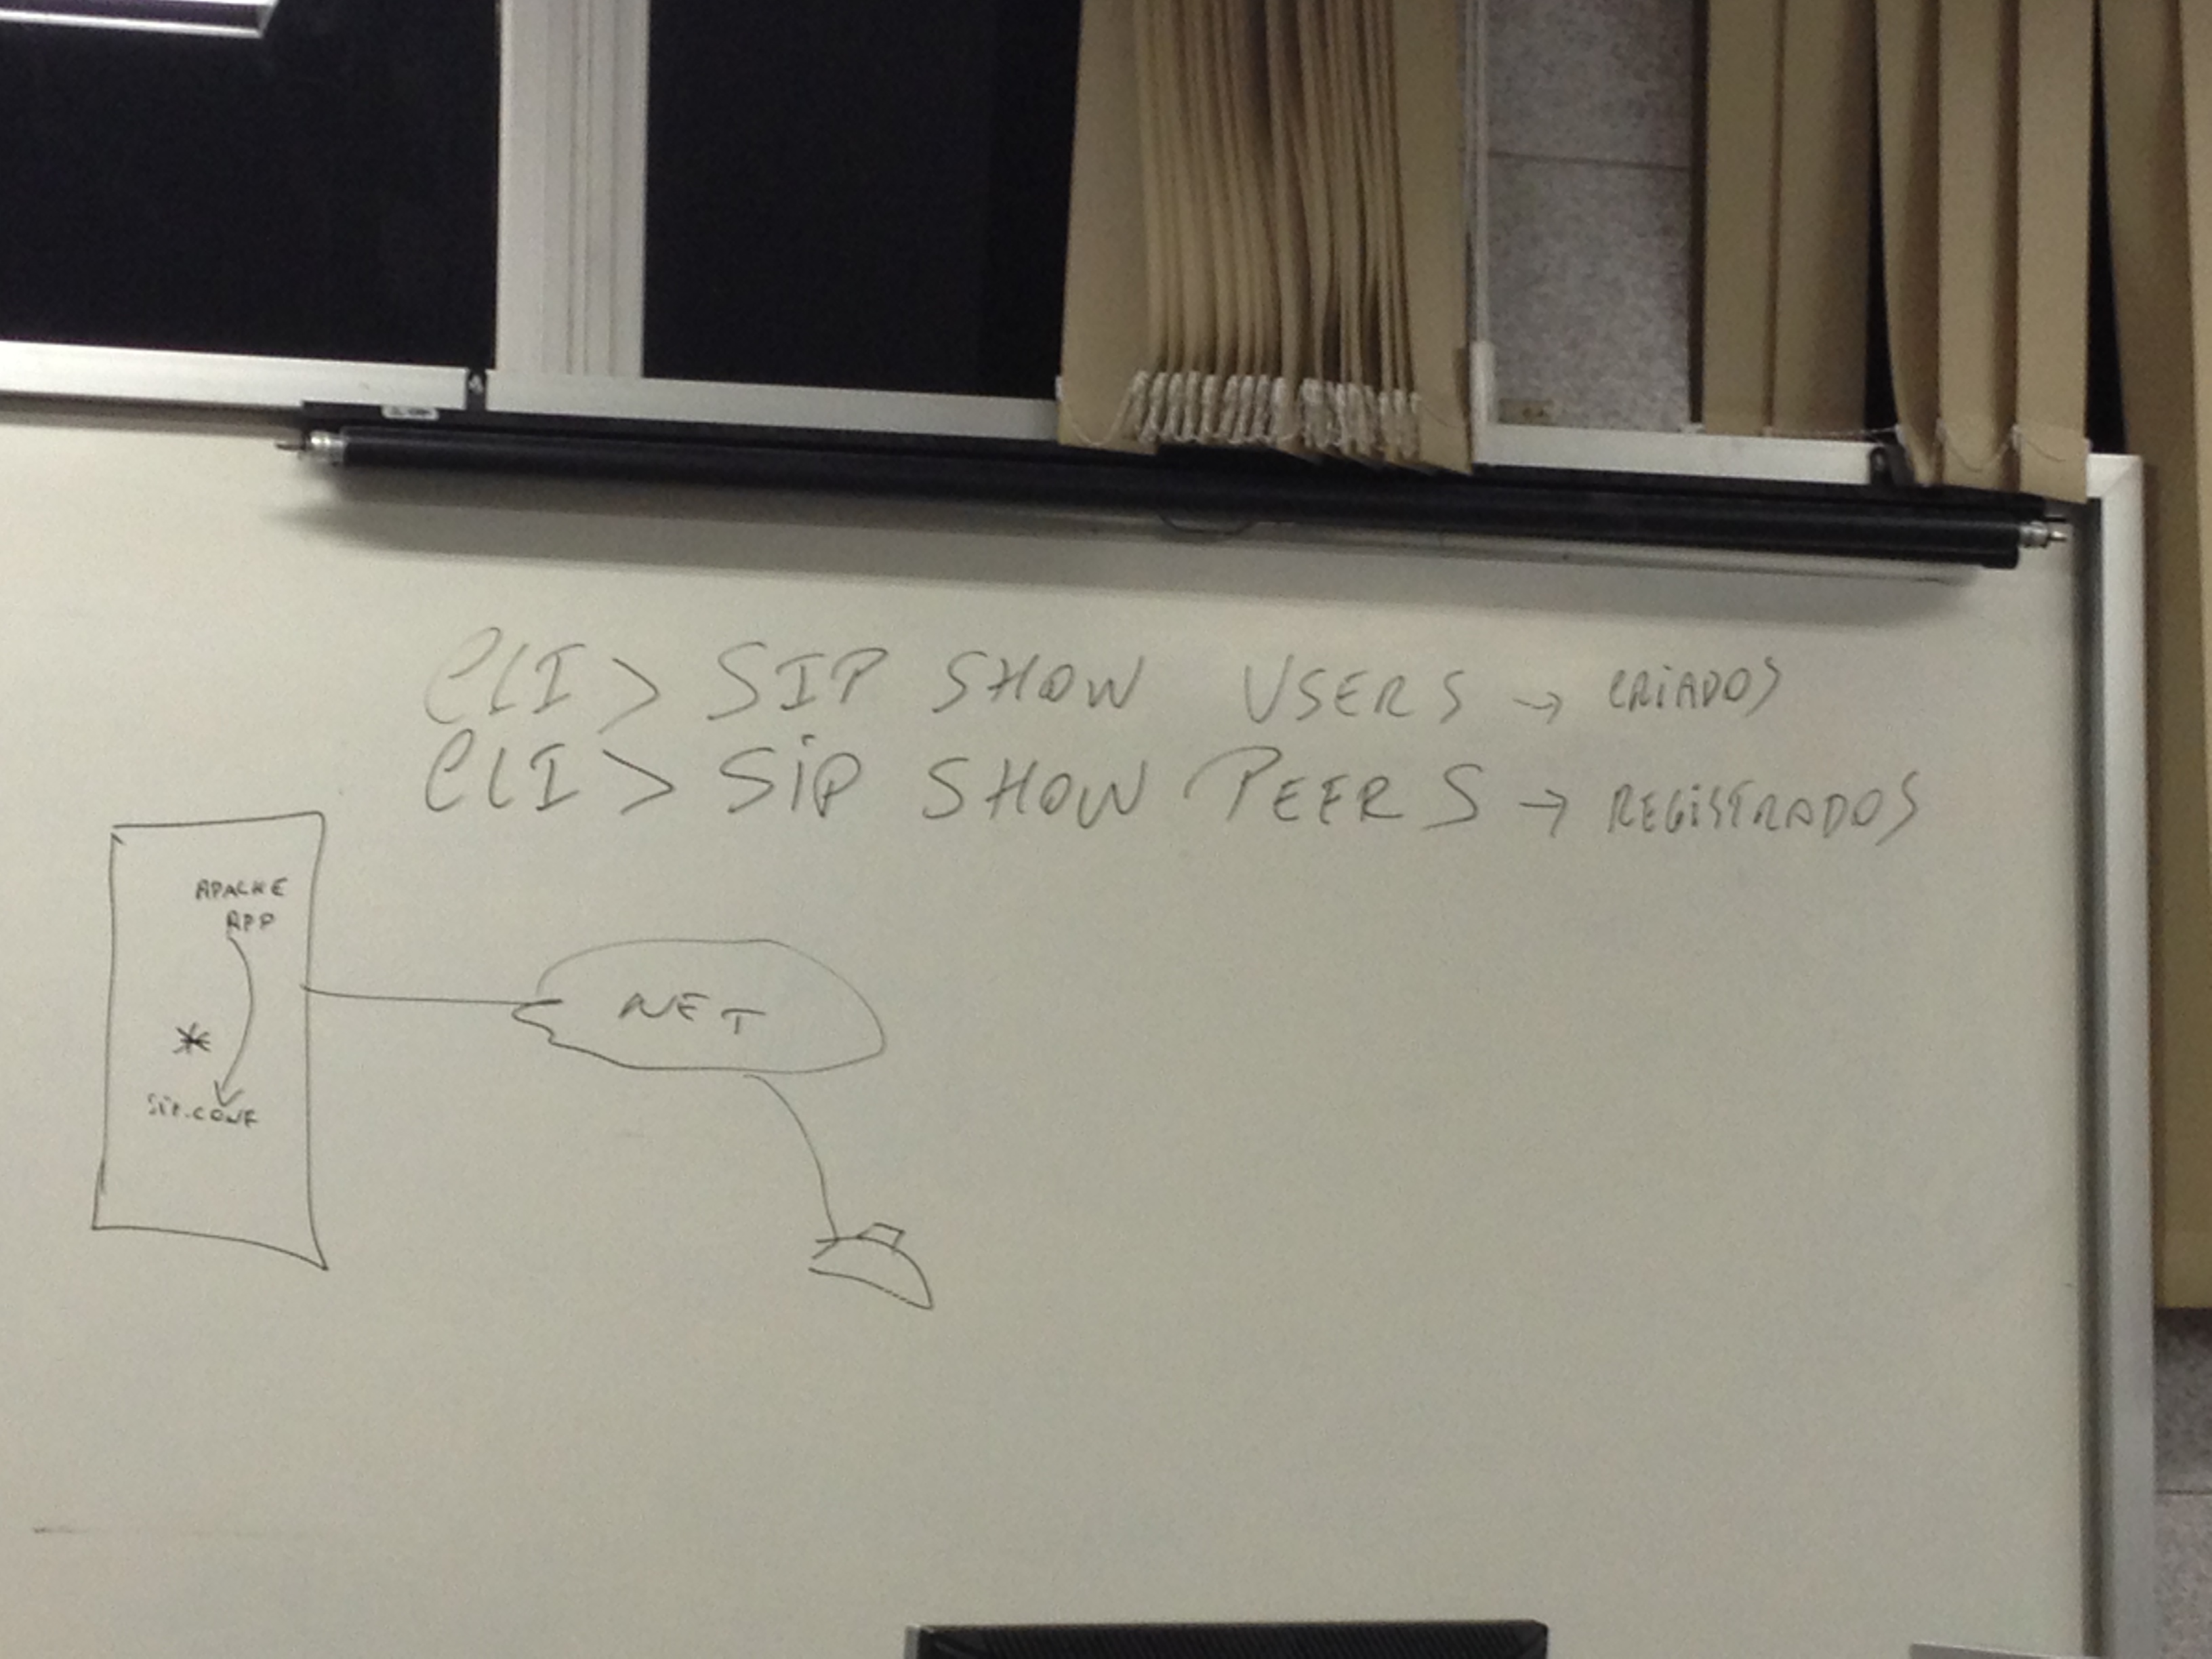 CLI> SIP SHOW USERS → CRIADOS
CLI> SiP SHOW PEERS → REGiSTRADOS
APACHE
APP
NET
*
SiP.CONF